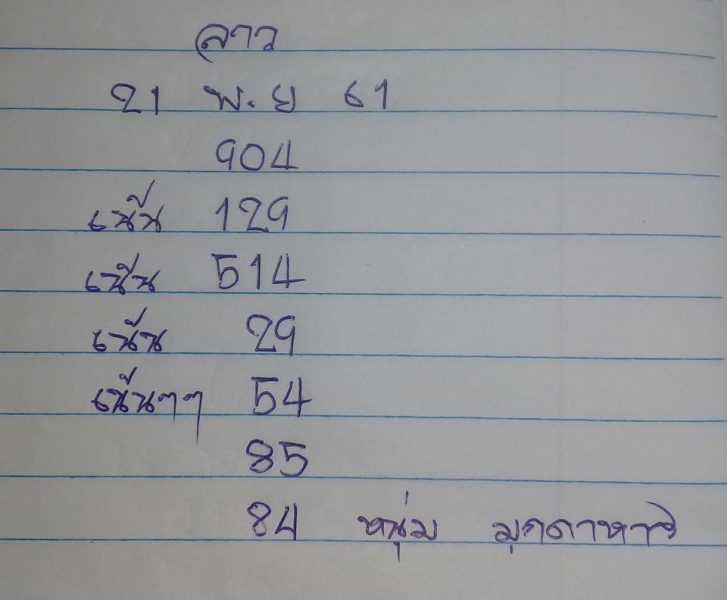 ลาว
21 พ.ย 61
904
เน้น 129
เน้น 514
เน้น 29
เน้นๆๆ 54
85
84 หนุ่ม มุกดาหาร